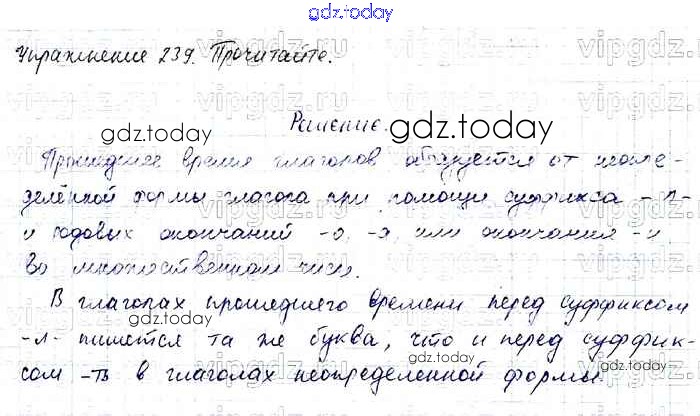 gdz.today
Упражнение 239. Прочитайте.
Решение.
gdz.today
gdz.today
Прошедшее время глаголов образуется от неопре-
делённой формы глагола при помощи суффикса -л-
и родовых окончаний -о, -а, или окончания -и
во множественном числе.
В глаголах прошедшего времени перед суффиксом
gdz.today
-л- пишется та же буква, что и перед суффик-
gdz.today
сом -ть в глаголах неопределенной формы.
gdz.today